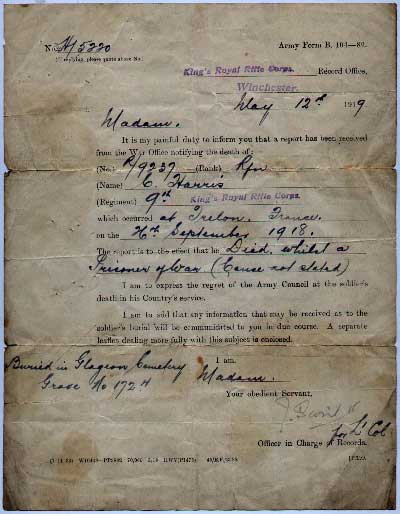 No. H/5220
(If replying, please quote above No.)
Army Form B. 104—82.
King's Royal Rifle Corps. Record Office,
Winchester.
May 12th 1919
Madam,
It is my painful duty to inform you that a report has been received
from the War Office notifying the death of :—
(No.) R/9237 (Rank) Rfn
(Name) C. Harris
(Regiment) 9th King's Royal Rifle Corps.
which occurred at Trelon, France.
on the 26th September 1918.
The report is to the effect that he Died whilst a
Prisoner of War (Cause not stated)
I am to express the regret of the Army Council at the soldier's
death in his Country's service.
I am to add that any information that may be received as to the
soldier's burial will be communicated to you in due course. A separate
leaflet dealing more fully with this subject is enclosed.
Buried in Glageon Cemetery
Grave No 172 H
I am,
Madam,
Your obedient Servant,
for Lt Col
Officer in Charge of Records.